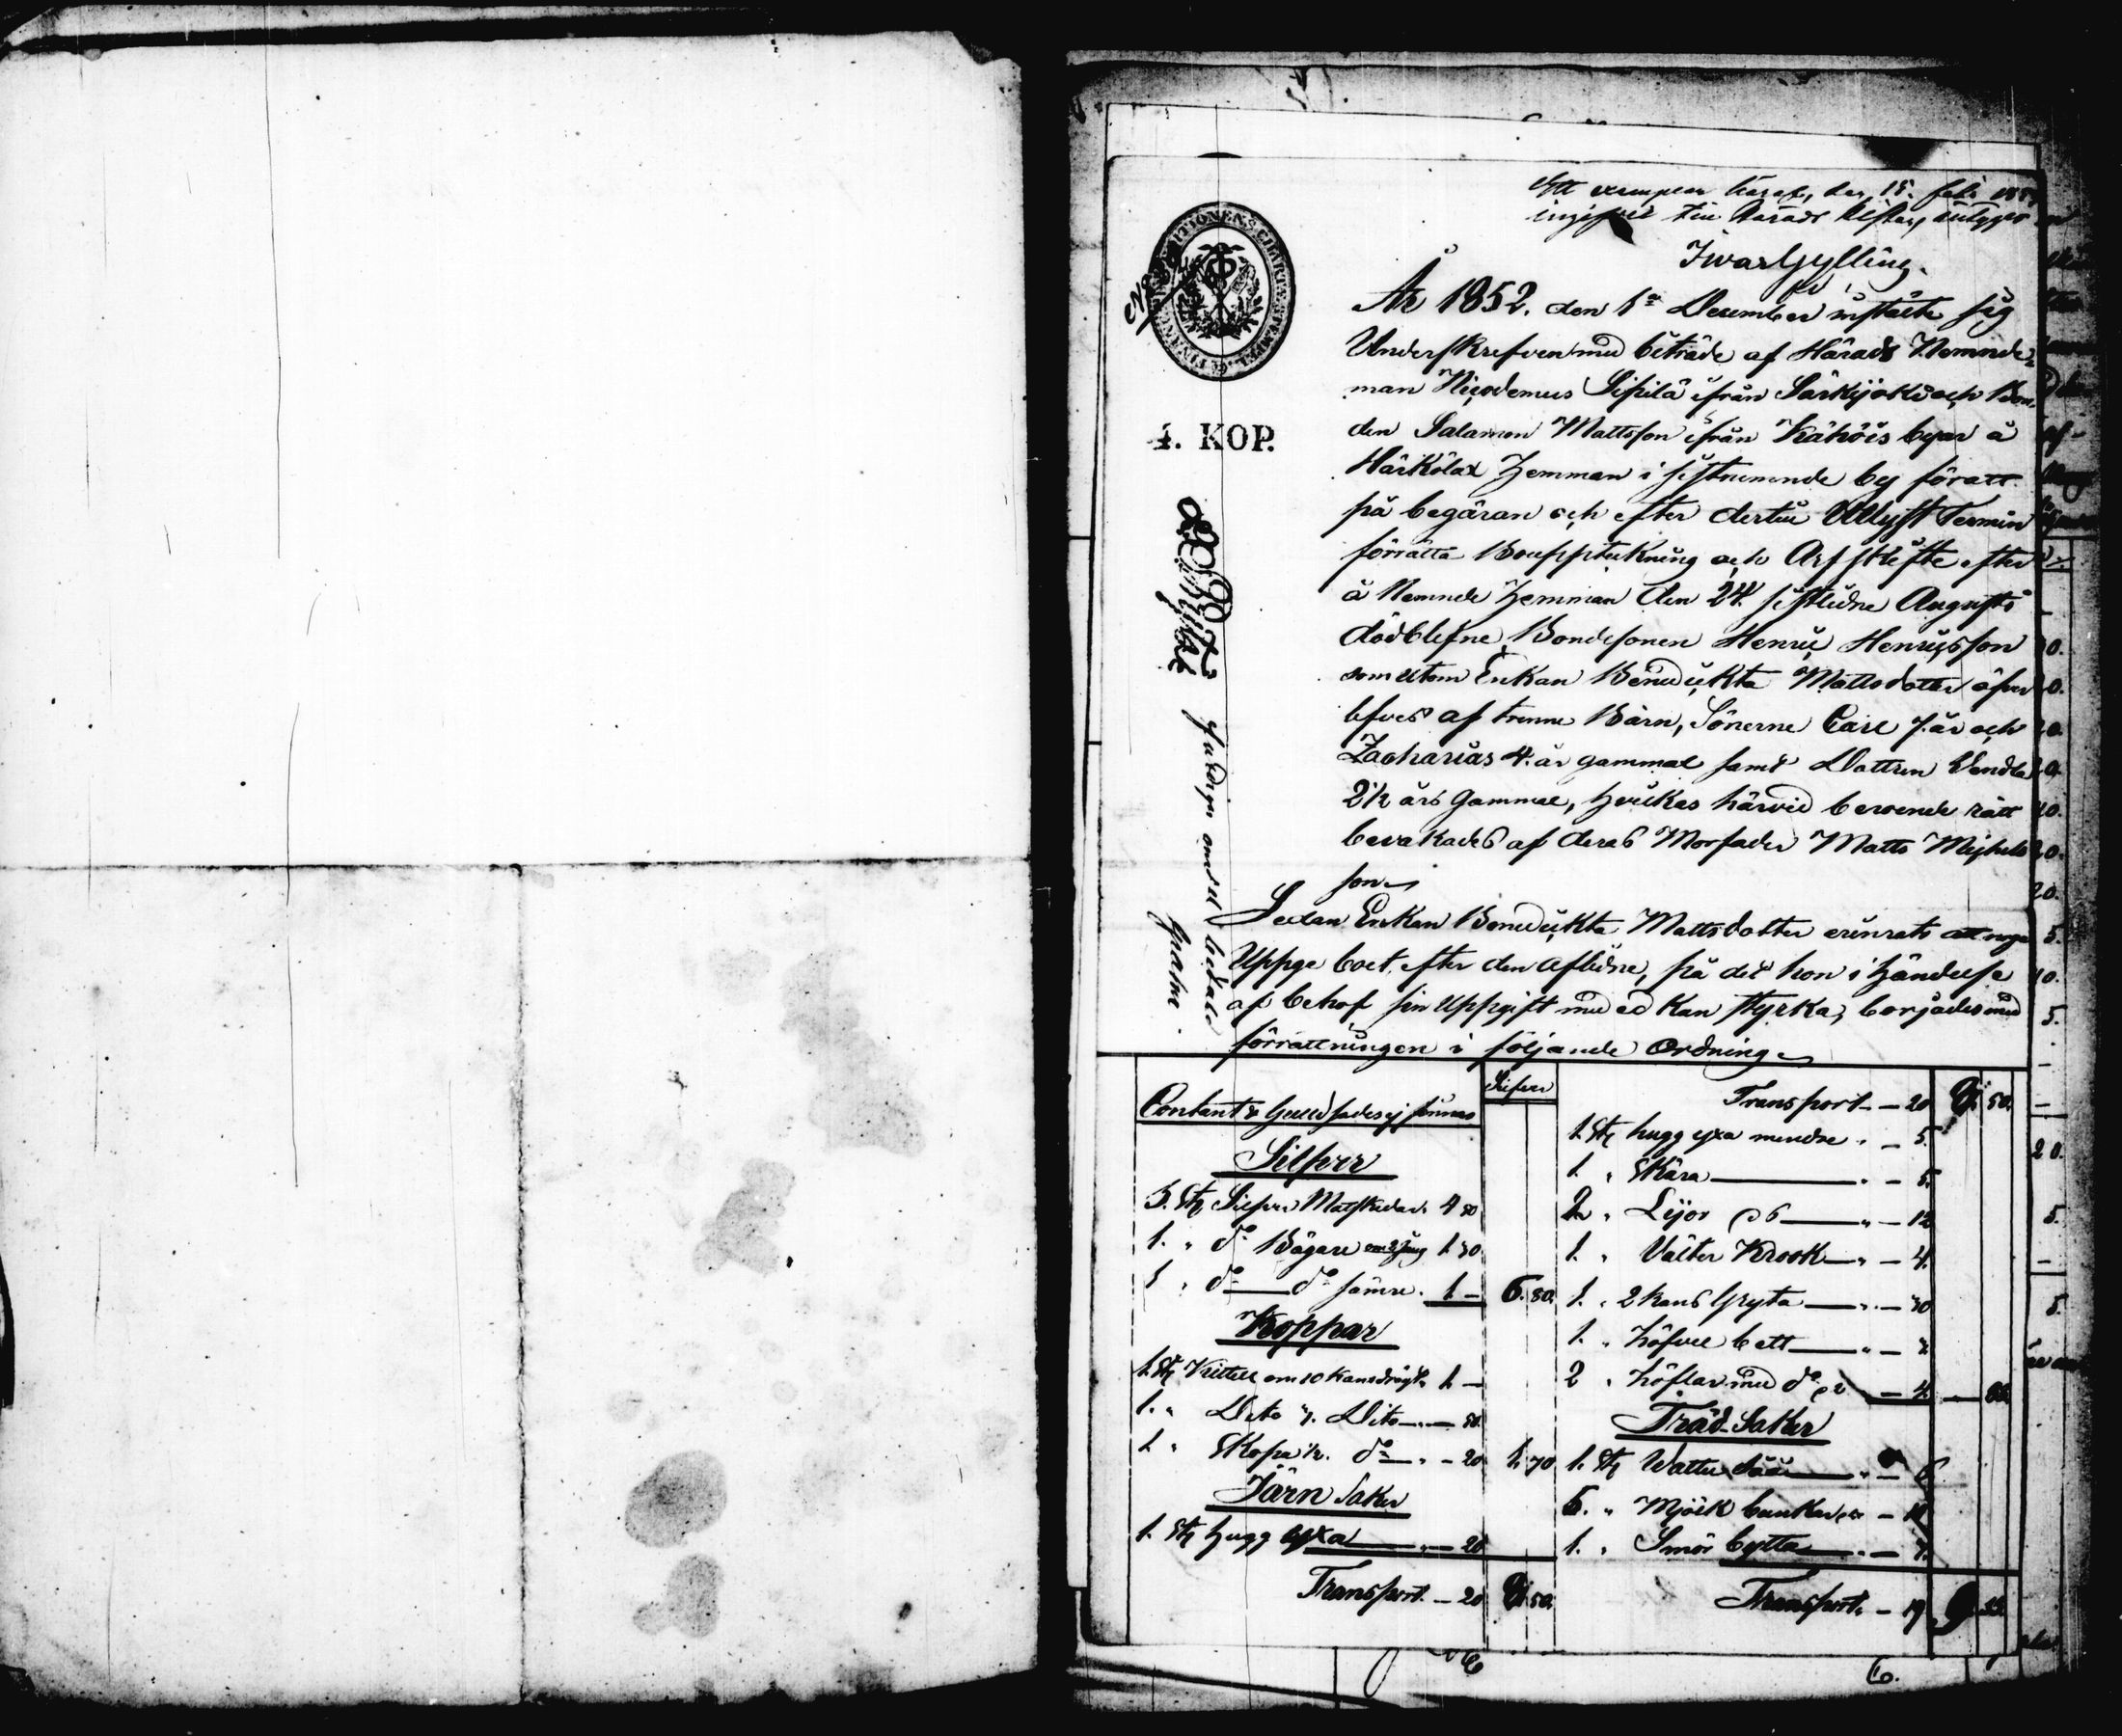 Ett exemplar häraf, den 15. feb. 1853
ingifvit till Härads
Iwar Gylling.
4. KOP.
År 1852. den 1a December instälte sig
Underskrefven med biträde af Härads Nemnde-
man Nicodemus Sipilä ifrån Särkijoki och Bon-
den Salamon Mattsson ifrån Kähöis byar å
Härkölax Hemman i sistnemnde by föratt
på begäran och efter dertill Utlyst Termin
förrätta Bouppteckning och Arfskifte efter
å Nemnde Hemman den 24. sistledne Augusti
dödblefne Bondesonen Henric Henricsson
som utom Enkan Benedickta Mattsdotter öfver
lefves af trenne Barn, Sönerne Carl 7. år och
Zacharias 4. år gammal samt Dottren Vendla
2 1/2 års gammal, hvilkas härvid beroende rätt
bevakades af deras Morfader Matts Michels
son
Sedan Enkan Benedickta Mattsdotter erinrats att noga
Uppge boet efter den aflidne, på det hon i händelse
af behof sin Uppgift med ed kan styrka, börjades med
förrättningen i följande Ordning
Silfver
Contant & Guld sades ej finnas
Silfver
3. St. Silfver Matskedar 4 50
1. " do Bägare 1 30
1 " do do sämre 1 — 6. 80.
Koppar
1. St. Kittell om 10 Kans drägt. 1 —
1. " Dito Dito — 50.
1 " Skopa 1/2. do — 20 1. 70
Järn Saker
1. St. hugg yxa — 20
Transport. — 20 8. 50.
Transport — 20 8. 50.
1. St. hugg yxa mindre — 5.
1. " Skära — 5.
2. " Lijor — 12
1. " Välter Krook — 4.
1. " 2 kans Gryta — 30
1. " höfvel bett
2 " höflar med do — 4.
Träd-Saker
1. St. Watten Såå — 6
5. " Mjölk bunkar — 10
1. " Smör bytta
Transport. — 19